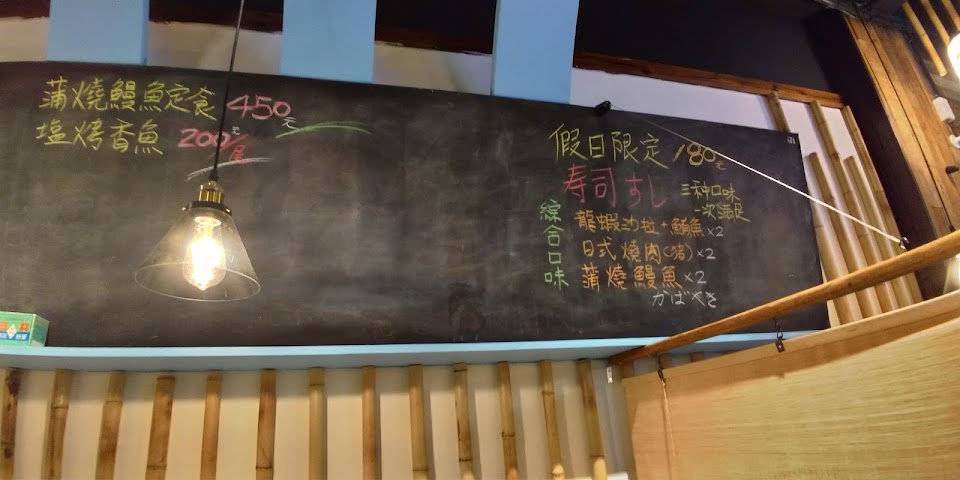 蒲燒鰻魚定食 450元
塩烤香魚 200元/尾
假日限定 180元
寿司すし 三種口味
一次滿足
綜合口味
龍蝦沙拉+鮪魚x2
日式燒肉(豬)x2
蒲燒鰻魚x2
かばやき